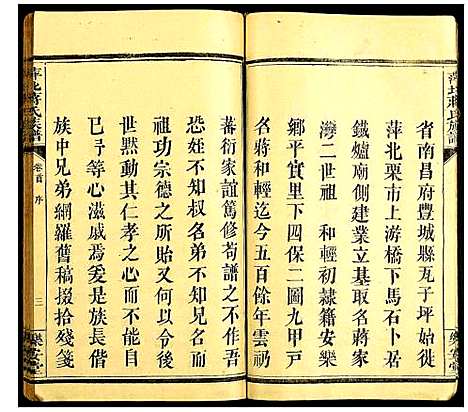 萍北蔣氏族譜
省南昌府豐城縣瓦子坪始遷
萍北栗市上游橋下馬石卜居
鐵爐廟側建業立基取名蔣家
灣二世祖 和輕初隸籍安樂
鄉平實里下四保二圖九甲戸
名蔣和輕迄今五百餘年雲礽
蕃衍家誼篤修苟譜之不作吾
恐姓不知叔名弟不知兄
祖功宗德之所以又何以令後
世黙動其仁孝之心而不能自
已予等心滋戚焉爰是族長偕
族中兄弟網羅舊稿掇拾殘箋
萍北蔣氏族譜
卷首 序
三
樂安堂